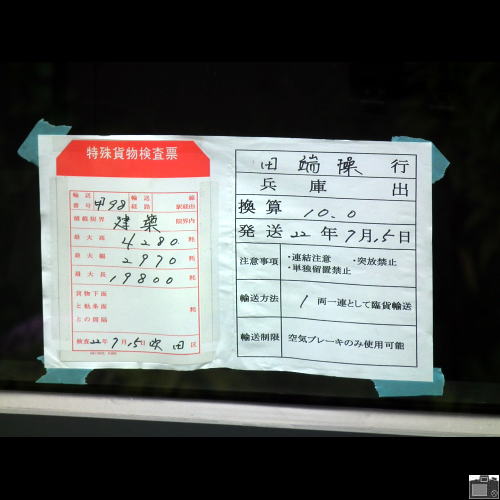 特殊貨物検査票
輸送番号 甲98 輸送経路 線駅経由
積載限界 建築 限界内
最大高 4280 粍
最大幅 2970 粍
最大長 19800 粍
貨物下面と軌条面との間隔 粍
検査 22年 7月15日 吹田区
田端操行
兵庫出
換算 10.0
発送 22年7月15日
注意事項 ・連結注意 ・突放禁止
・単独留置禁止
輸送方法 1両一連として臨貨輸送
輸送制限 空気ブレーキのみ使用可能